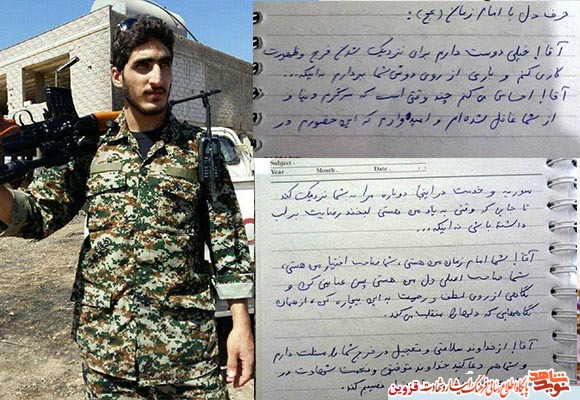 حرف دل با امام زمان (عج):
آقا! خیلی دوست دارم برای نزدیک شدن فرج و ظهورت
کاری کنم و باری از روی دوش شما بردارم ندایکه...
آقا! احساس می کنم چند وقتی است که سرگرم دنیا و
از شما غافل شده ام و امیدوارم که این حضورم در
Subject.
Year . Month . Date . ( )
سوریه و خدمت در اینجا دوباره مرا به شما نزدیک کند
تا جایی که وقتی به یاد من هستی لبخند رضایت بر لب
داشته باشی
آقا! شما امام زمان من هستی، شما صاحب اختیار من هستی،
شما صاحب اصلی دل من هستی پس عنایتی کن و
نگاهی از روی لطف و رحمت به این بیچاره کن، از همان
نگاههایی که دلها را منقلب می کند.
آقا! از خداوند سلامتی و تعجیل در فرج شما را مسئلت دارم
و شما هم دعا کنید خداوند توفیق و نعمت شهادت در
نصیبم کند.
نوید شاهد
پایگاه اطلاع رسانی فرهنگ ایثار و شهادت قزوین